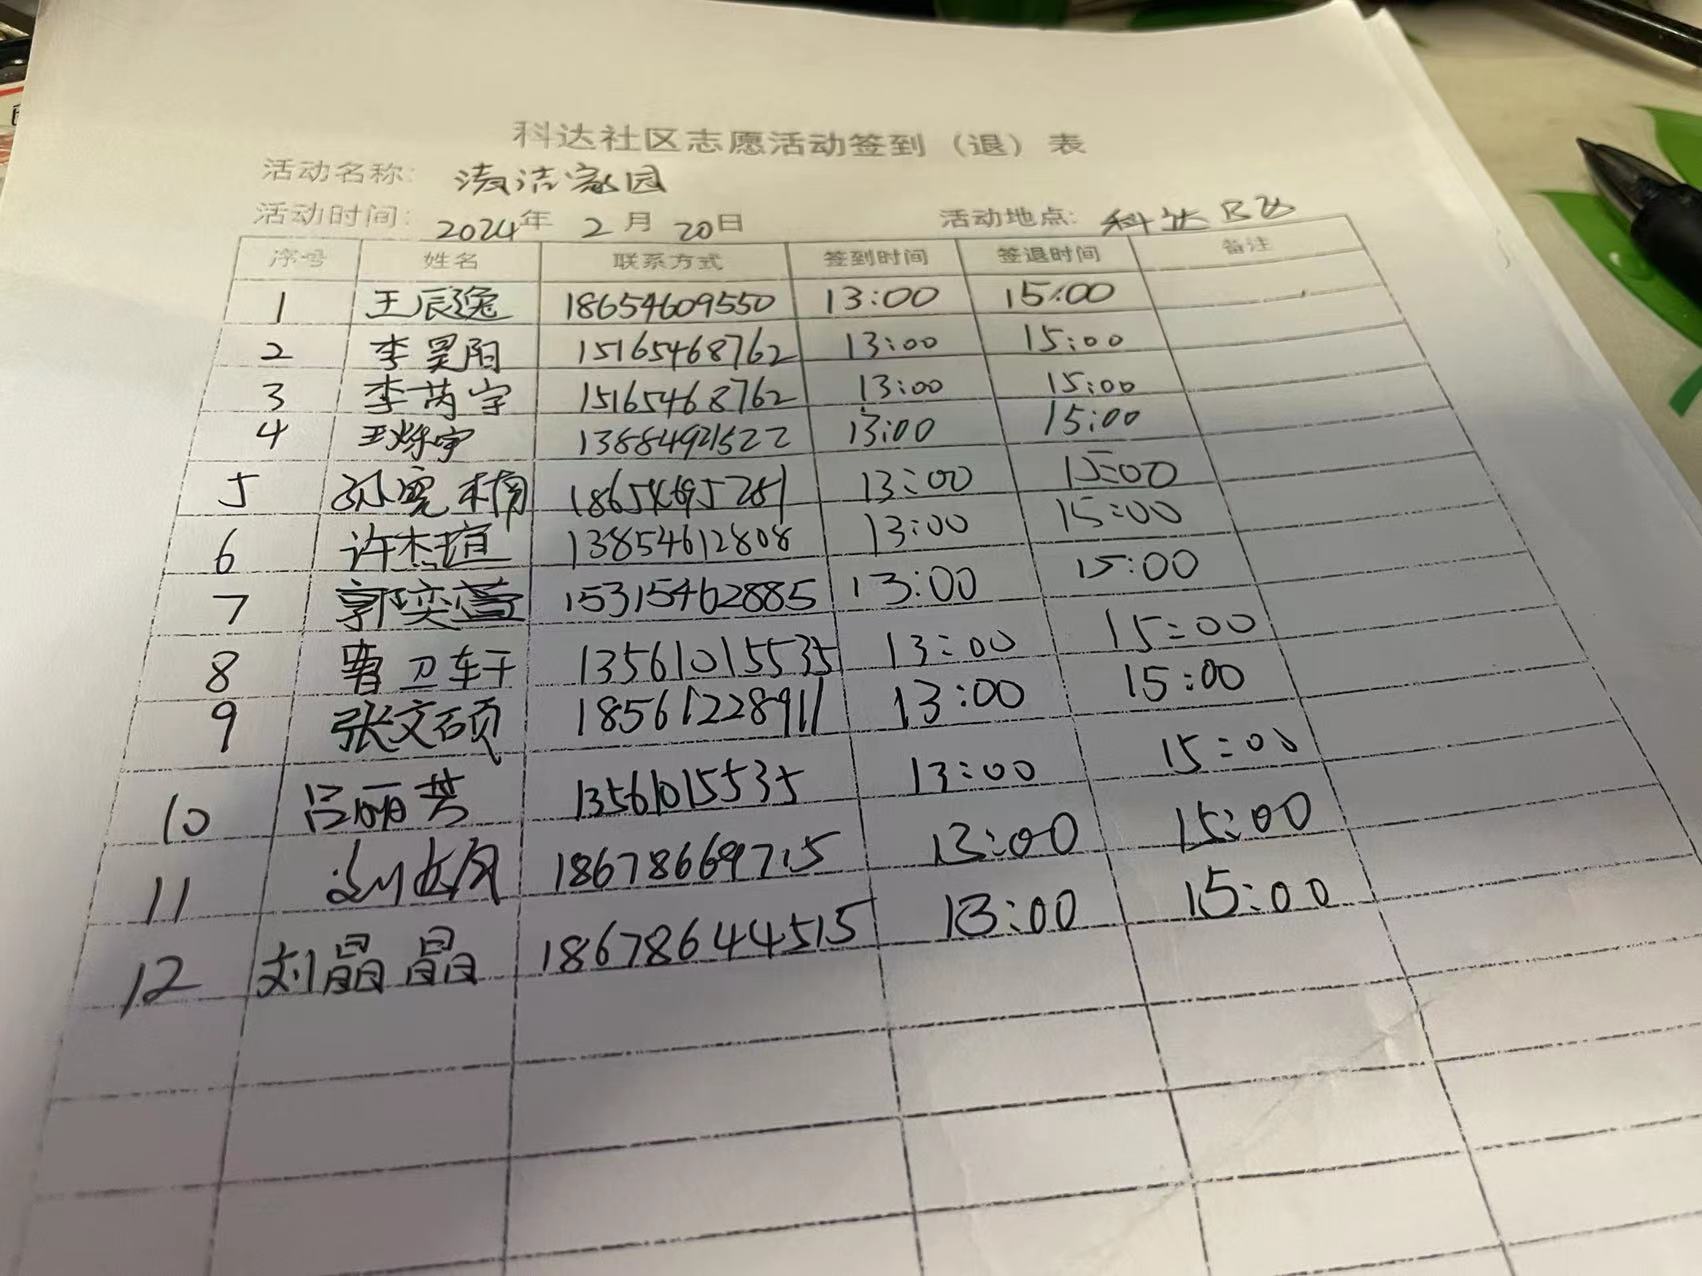 科达社区志愿活动签到（退）表
活动名称: 清洁家园
活动时间: 2024年 2月 20日 活动地点: 科达B区
序号 姓名 联系方式 签到时间 签退时间 备注
1 王辰逸 18654609550 13:00 15:00
2 李昊阳 15165468762 13:00 15:00
3 李芮宇 15165468762 13:00 15:00
4 王烁宇 13884921522 13:00 15:00
5 孙宽楠 18654695281 13:00 15:00
6 许杰瑄 13854612808 13:00 15:00
7 郭奕萱 15315462885 13:00 15:00
8 曹卫轩 13561015535 13:00 15:00
9 张文硕 18561228911 13:00 15:00
10 吕丽芳 13561015535 13:00 15:00
11 18678669715 13:00 15:00
12 刘晶晶 18678644515 13:00 15:00